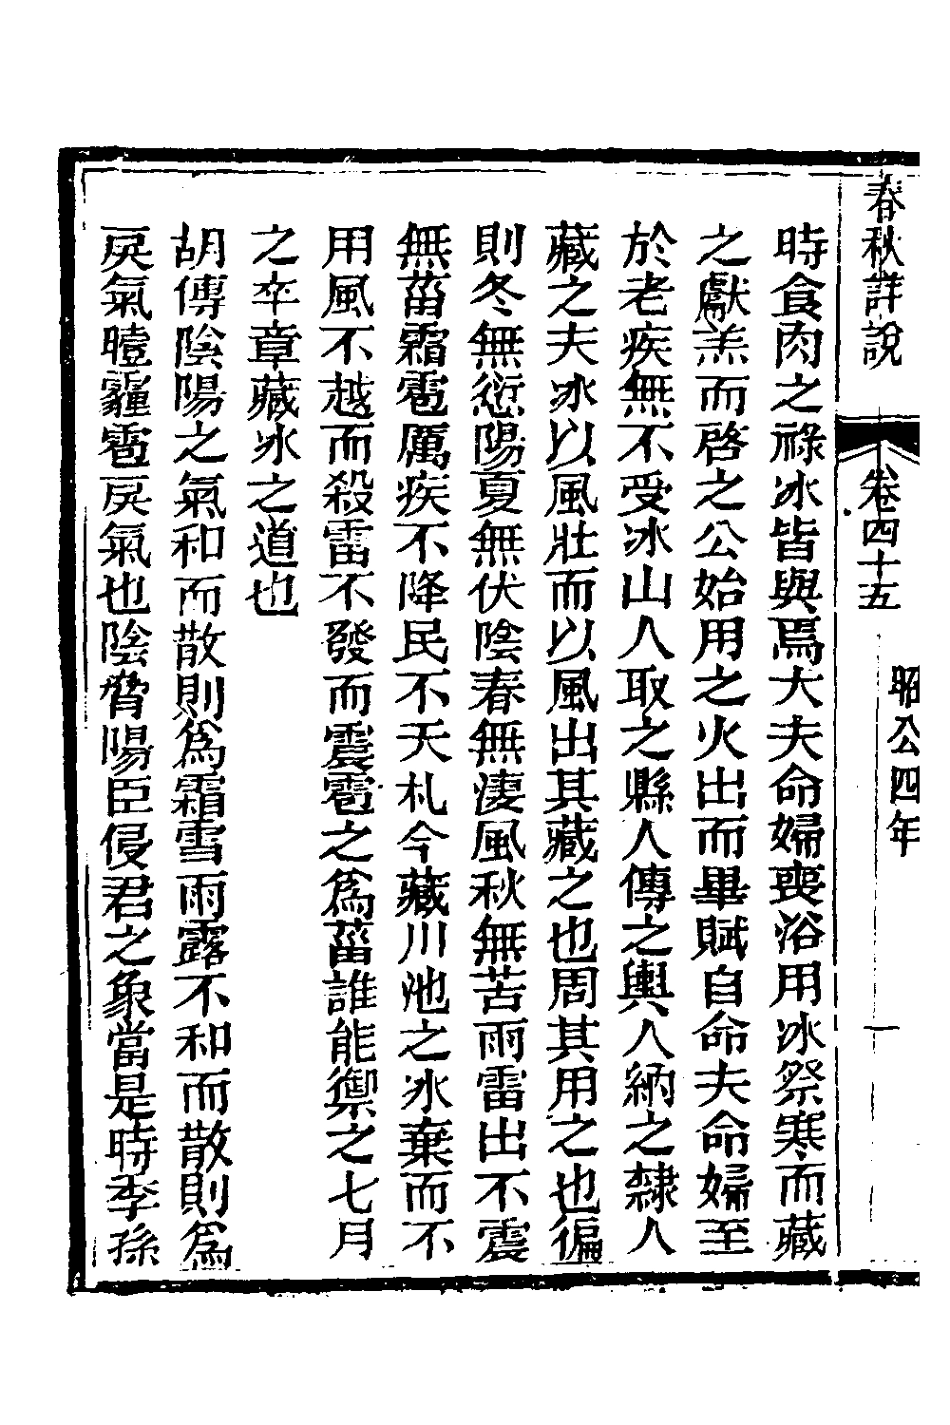 春秋詳說　卷四十五　昭公四年　一
時食肉之祿冰皆與焉大夫命婦喪浴用冰祭寒而藏
之獻羔而啓之公始用之火出而畢賦自命夫命婦至
於老疾無不受冰山人取之縣人傳之輿人納之隸人
藏之夫冰以風壯而以風出其藏之也周其用之也徧
則冬無愆陽夏無伏陰春無淒風秋無苦雨雷出不震
無菑霜雹厲疾不降民不夭札今藏川池之冰棄而不
用風不越而殺雷不發而震雹之爲菑誰能禦之七月
之卒章藏冰之道也
胡傳陰陽之氣和而散則爲霜雪雨露不和而散則爲
戾氣曀霾雹戾氣也陰脅陽臣侵君之象當是時季孫